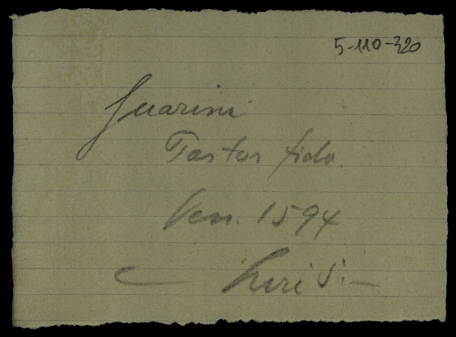 5-110-320
Guarini
Pastor fido.
Ven. 1594